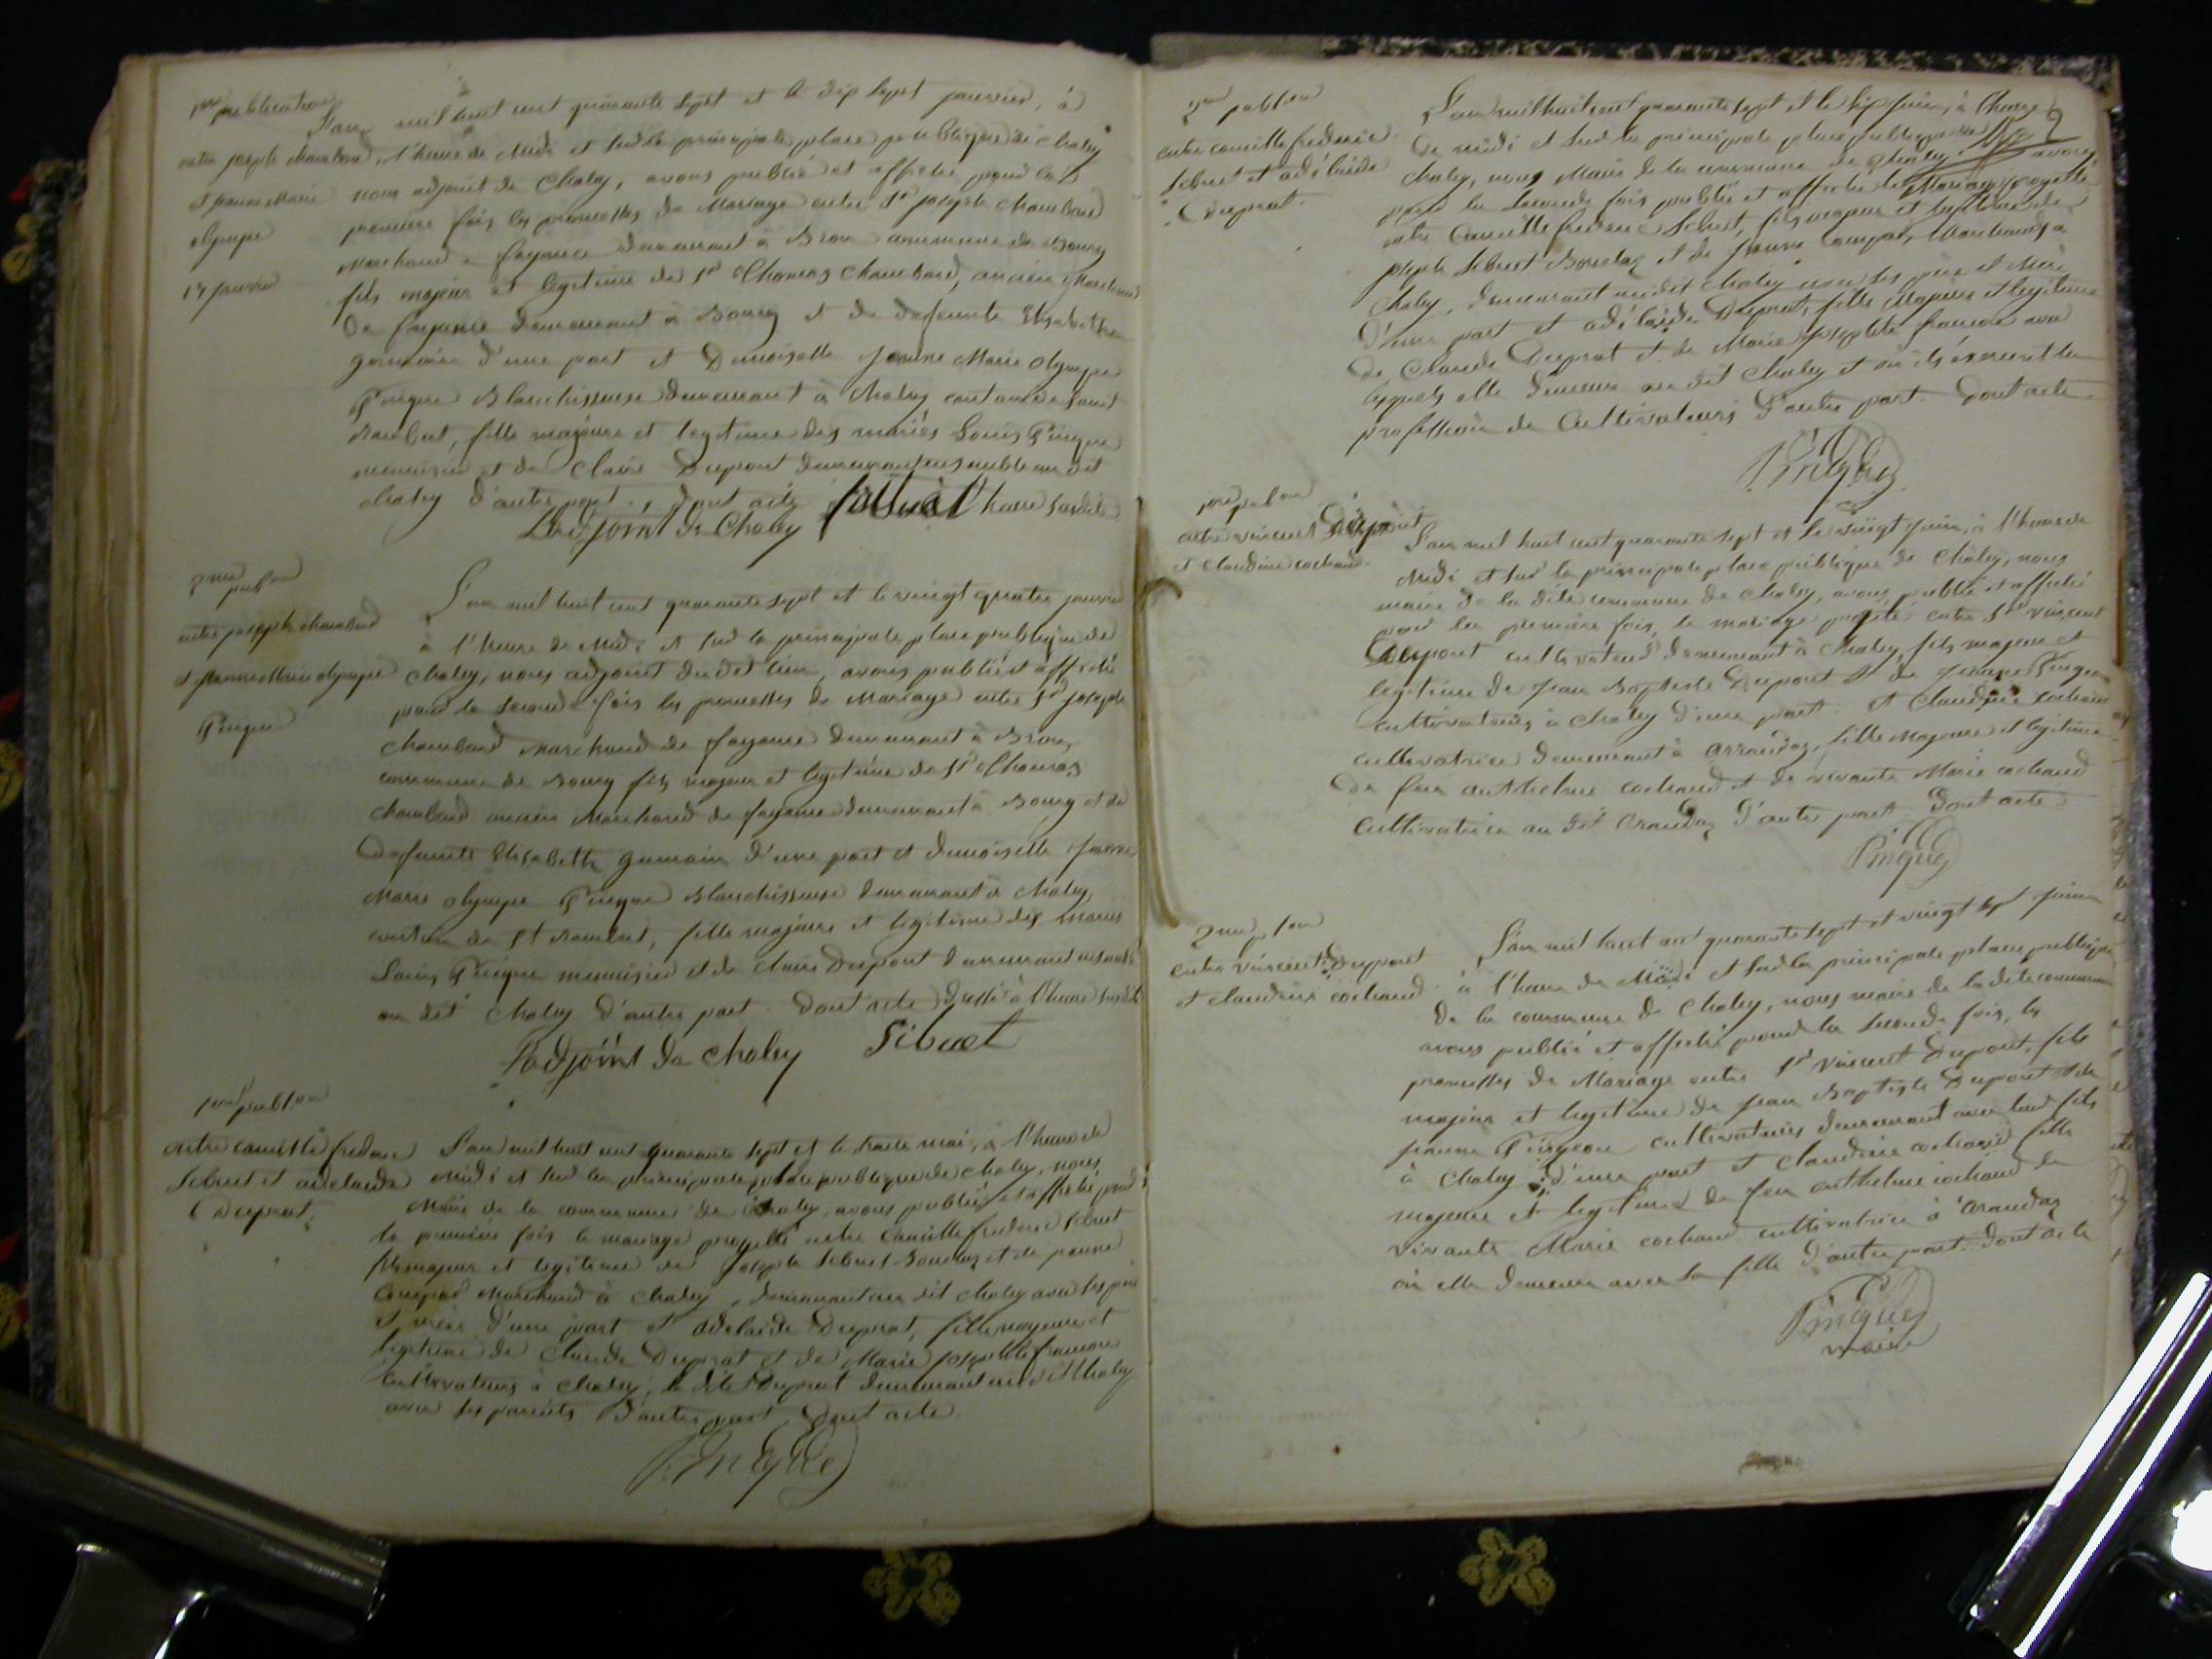 1ere publication
entre joseph chambard
et jeanne Marie
olympe
17 janvier
L'an mil huit cent quarante sept et le dix sept janvier, à
l'heure de Midi et sur la principale place publique de chaley
nous adjoint de Chaley, avons publié et affiché pour la
premiere fois les promesses de Mariage entre Sr joseph chambard
Marchand de fayance demeurant à Brou commune de Bourg
fils majeur et legitime de Sr Thomas chambard, ancien Marchand
de fayance demeurant à Bourg et de defunte Elisabeth
germain d'une part et Demoiselle jeanne Marie olympe
Pingue Blanchisseuse demeurant à Chaley canton de saint
Rambert, fille majeure et legitime des mariés Louis Pingue
menuisier et de Claire Dupont demeurant ensemble au dit
chaley d'autre part. Dont acte l'heure susdite
L'adjoint de Chaley
2me pub.on
entre joseph chambard
et jeanne Marie olympe
Pingue
L'an mil huit cent quarante sept et le vingt quatre janvier
à l'heure de Midi et sur la principale place publique de
chaley, nous adjoint du dit lieu, avons publié et affiché
pour la seconde fois les promesses de Mariage entre Sr joseph
chambard marchand de fayance demeurant à Brou,
commune de Bourg fils majeur et legitime de Sr Thomas
chambard ancien Marchand de fayance demeurant à Bourg et de
defunte Elisabeth germain d'une part et demoiselle jeanne
Marie olympe Pingue Blanchisseuse demeurant à chaley
canton de St Rambert, fille majeure et legitime des mariés
Louis Pingue menuisier et de claire Dupont demeurant ensemble
au dit chaley d'autre part. Dont acte dressé à l'heure susdite
L'adjoint de chaley Sibuet
1ere publ.on
entre camille frederic
Sibuet et adelaide
Duprat
L'an mil huit cent quarante sept et le trente mai, à l'heure de
Midi et sur la principale place publique de chaley, nous
Maire de la commune de Chaley, avons publié et affiché pour
la premiere fois le mariage projetté entre Camille frederic Sibuet
fils majeur et legitime de joseph Sibuet Bourdaz et de jeanne
Compar Marchand à chaley, demeurant au dit chaley avec ses pere
et mere d'une part et adelaide Duprat, fille majeure et
legitime de Claude Duprat et de Marie josephte francon
cultivateurs à chaley, la dite Duprat demeurant au dit Chaley
avec ses parents d'autre part. Dont acte.
Pingue
2me publ.on
entre camille frederic
Sibuet et adélaïde
Duprat.
2
L'an mil huit cent quarante sept et le six juin, à l'heure
de midi et sur la principale place publique de
Chaley, nous Maire de la commune de chaley avons
pour la seconde fois publié et affiché le Mariage projetté
entre Camille frederic Sibuet, fils majeur et legitime de
joseph Sibuet Bourdaz et de jeanne Compar, Marchands à
Chaley, demeurant au dit Chaley avec ses père et Mère
d'une part et adélaïde Duprat, fille Majeure et legitime
de Claude Duprat et de Marie josephte francon avec
lesquels elle demeure au dit Chaley et où ils exercent la
profession de Cultivateurs d'autre part. Dont acte.
Pingue
1ere pub.on
entre vincent Dupont
et Claudine cochand.
L'an mil huit cent quarante sept et le vingt juin, à l'heure de
Midi et sur la principale place publique de Chaley, nous
maire de la dite commune de Chaley, avons publié et affiché
pour la premiere fois, le mariage projeté entre Sr vincent
Dupont cultivateur demeurant à Chaley, fils majeur et
legitime de jean Baptiste Dupont et de jeanne Pingeon
cultivateurs à Chaley d'une part. et Claudine cochand
cultivatrice demeurant à arrandaz, fille Majeure et legitime
de feu anthelme cochand et de vivante Marie cochand
cultivatrice au dit arandaz d'autre part. Dont acte
Pingue
2me p.on
entre vincent Dupont
et claudine cochand
L'an mil huit cent quarante sept et vingt sept juin
à l'heure de Midi et sur la principale place publique
de la commune de Chaley, nous maire de la dite commune
avons publié et affiché pour la seconde fois, les
promesses de Mariage entre Sr vincent Dupont, fils
majeur et legitime de jean Baptiste Dupont et de
jeanne Pingeon cultivateurs demeurant avec leur fils
à Chaley d'une part et claudine cochand fille
majeure et legitime de feu anthelme cochand de
vivante Marie cochand cultivatrice à arandaz
où elle demeure avec sa fille d'autre part. Dont acte
Pingue
maire